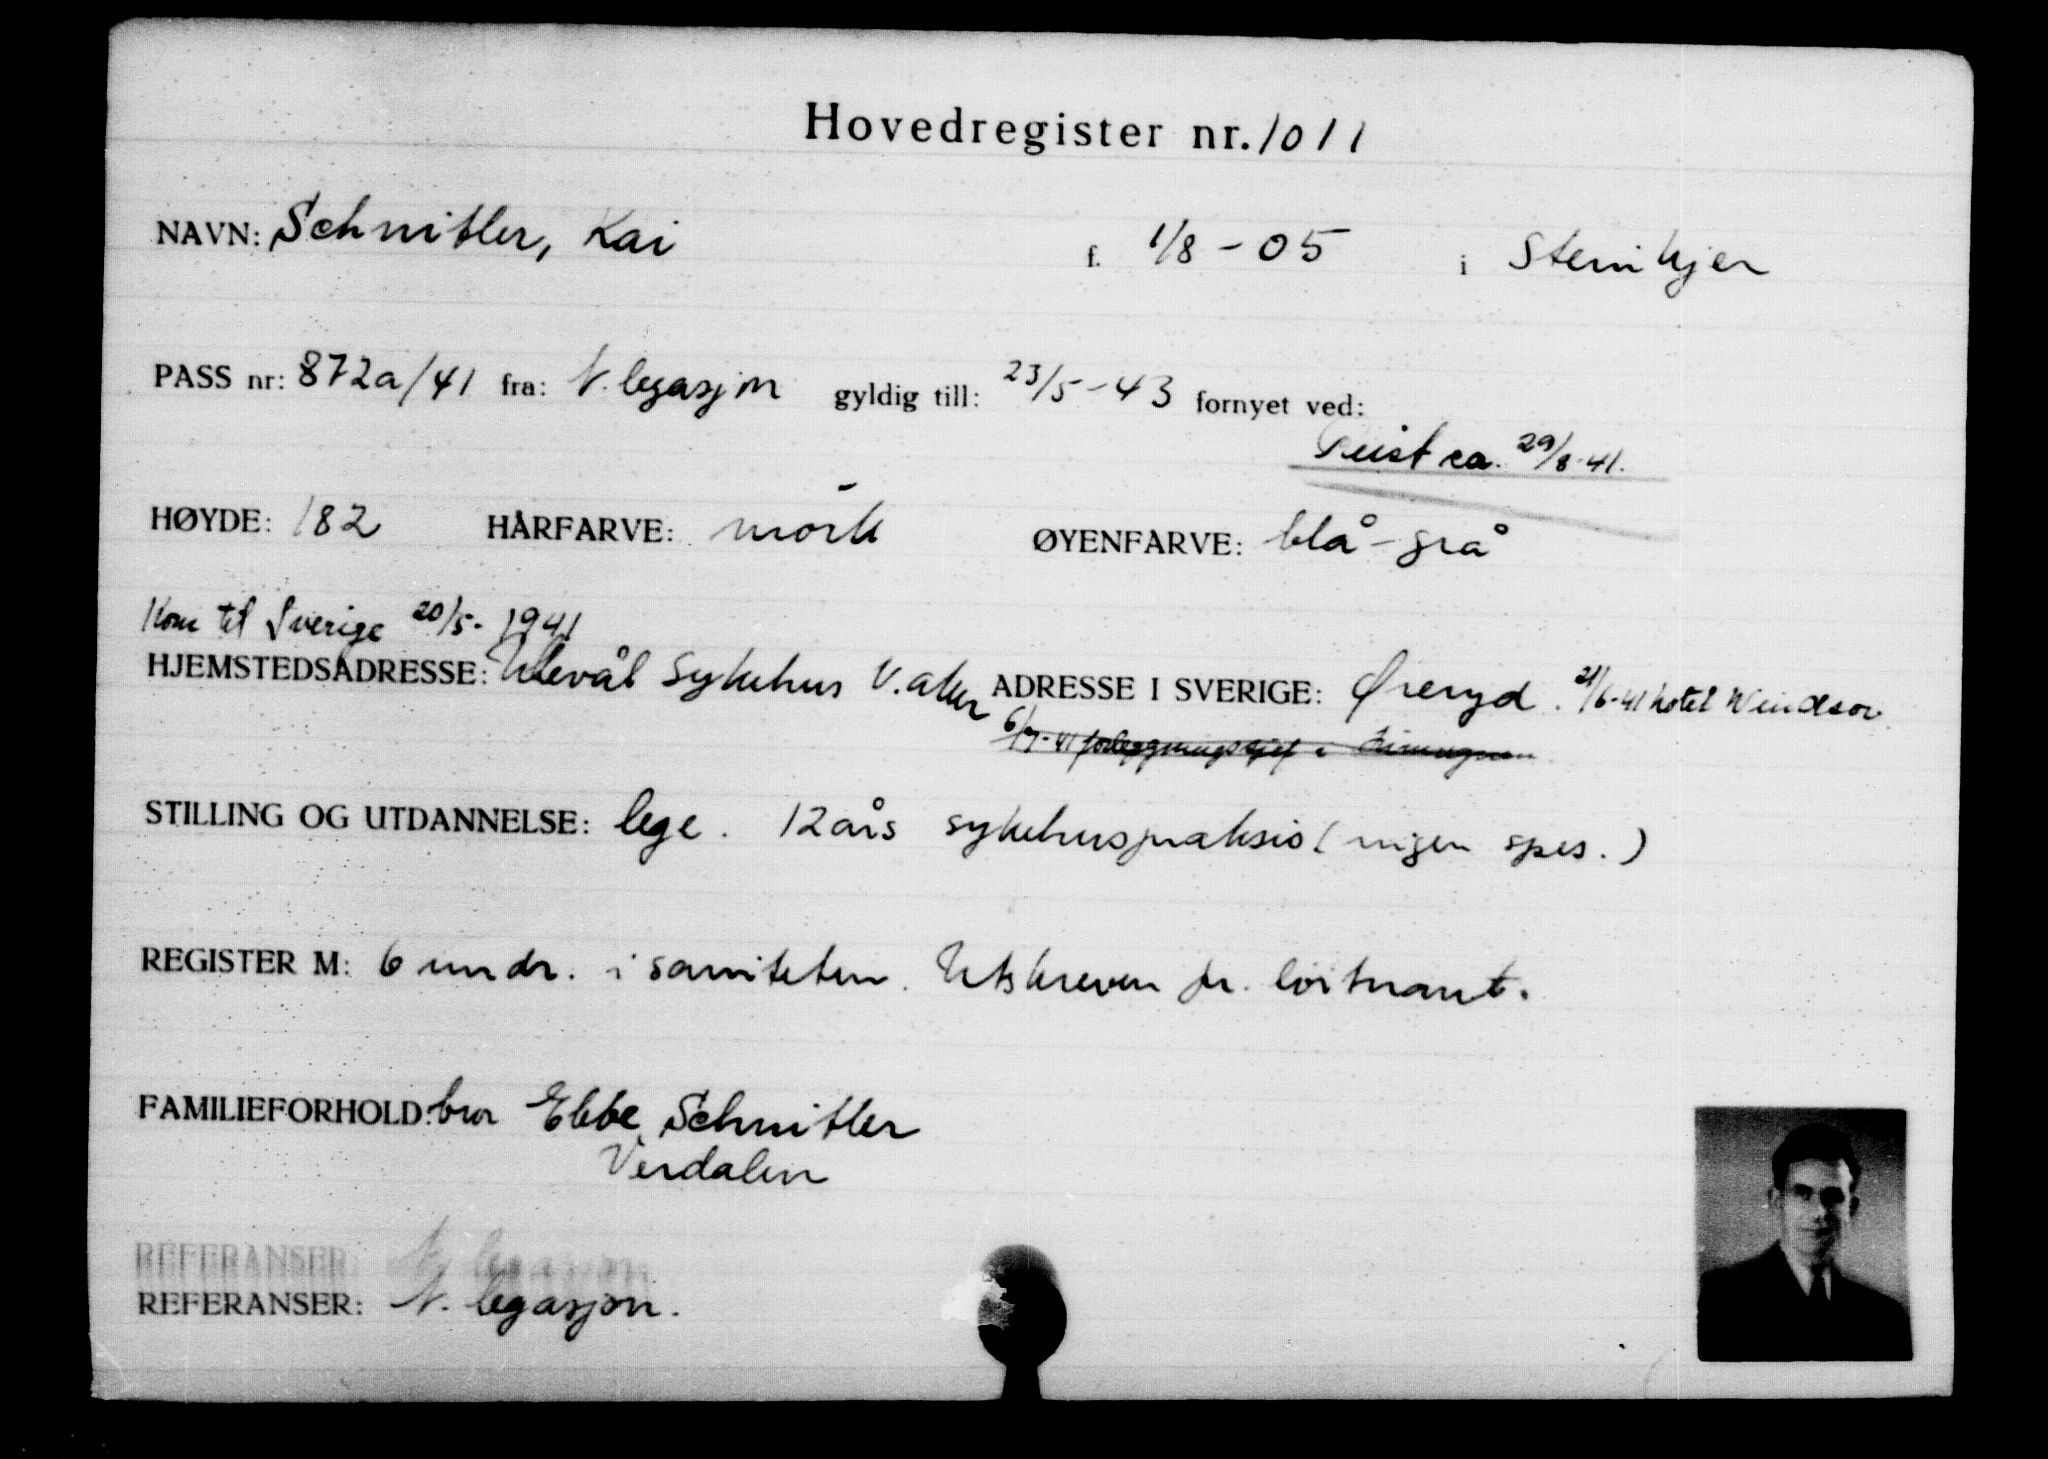 Hovedregister nr. 1011
NAVN: Schnitler, Kai f. 1/8 - 05 i Steinkjer
PASS nr: 872a/41 fra: N. legasjon gyldig till: 23/5 - 43 fornyet ved:
Reist ca. 29/8-41.
HØYDE: 182 HÅRFARVE: mörk ØYENFARVE: blå - grå
Kom til Sverige 20/5- 1941
HJEMSTEDSADRESSE: Ulevål sykehus V. aker ADRESSE I SVERIGE: Øreryd. 21/6-41 hotel Windsor
6/7-41 forlegningssjef i
STILLING OG UTDANNELSE: lege. 12 års sykehuspraksis (ingen spes.)
REGISTER M: 6 undr. i saniteten. Utskreven fr. löitnant.
FAMILIEFORHOLD: bror Ebbe Schnitler
Verdalen
REFERANSER: N. legasjon
REFERANSER: N. legasjon.